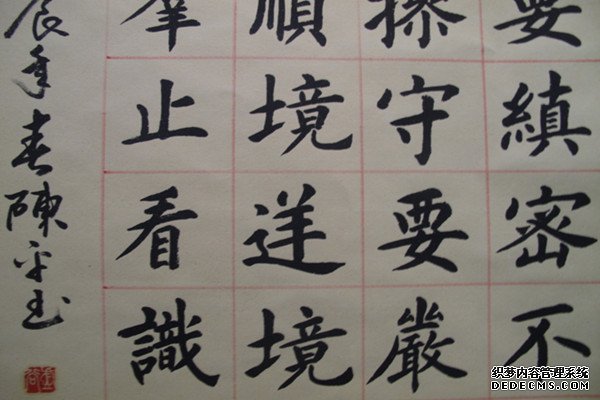 要縝密不
操守要嚴
順境逆境
舉止看識
辰年春陳平书
织梦内容管理系统
DEDECMS.COM